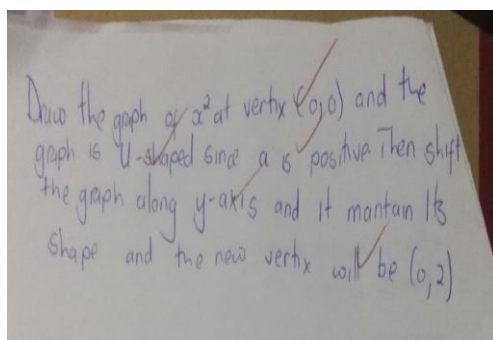 Draw the graph of x² at vertix (0,0) and the
graph is U-shaped since a is positive. Then shift
the graph along y-axis and it mantain Its
shape and the new vertix will be (0,2)